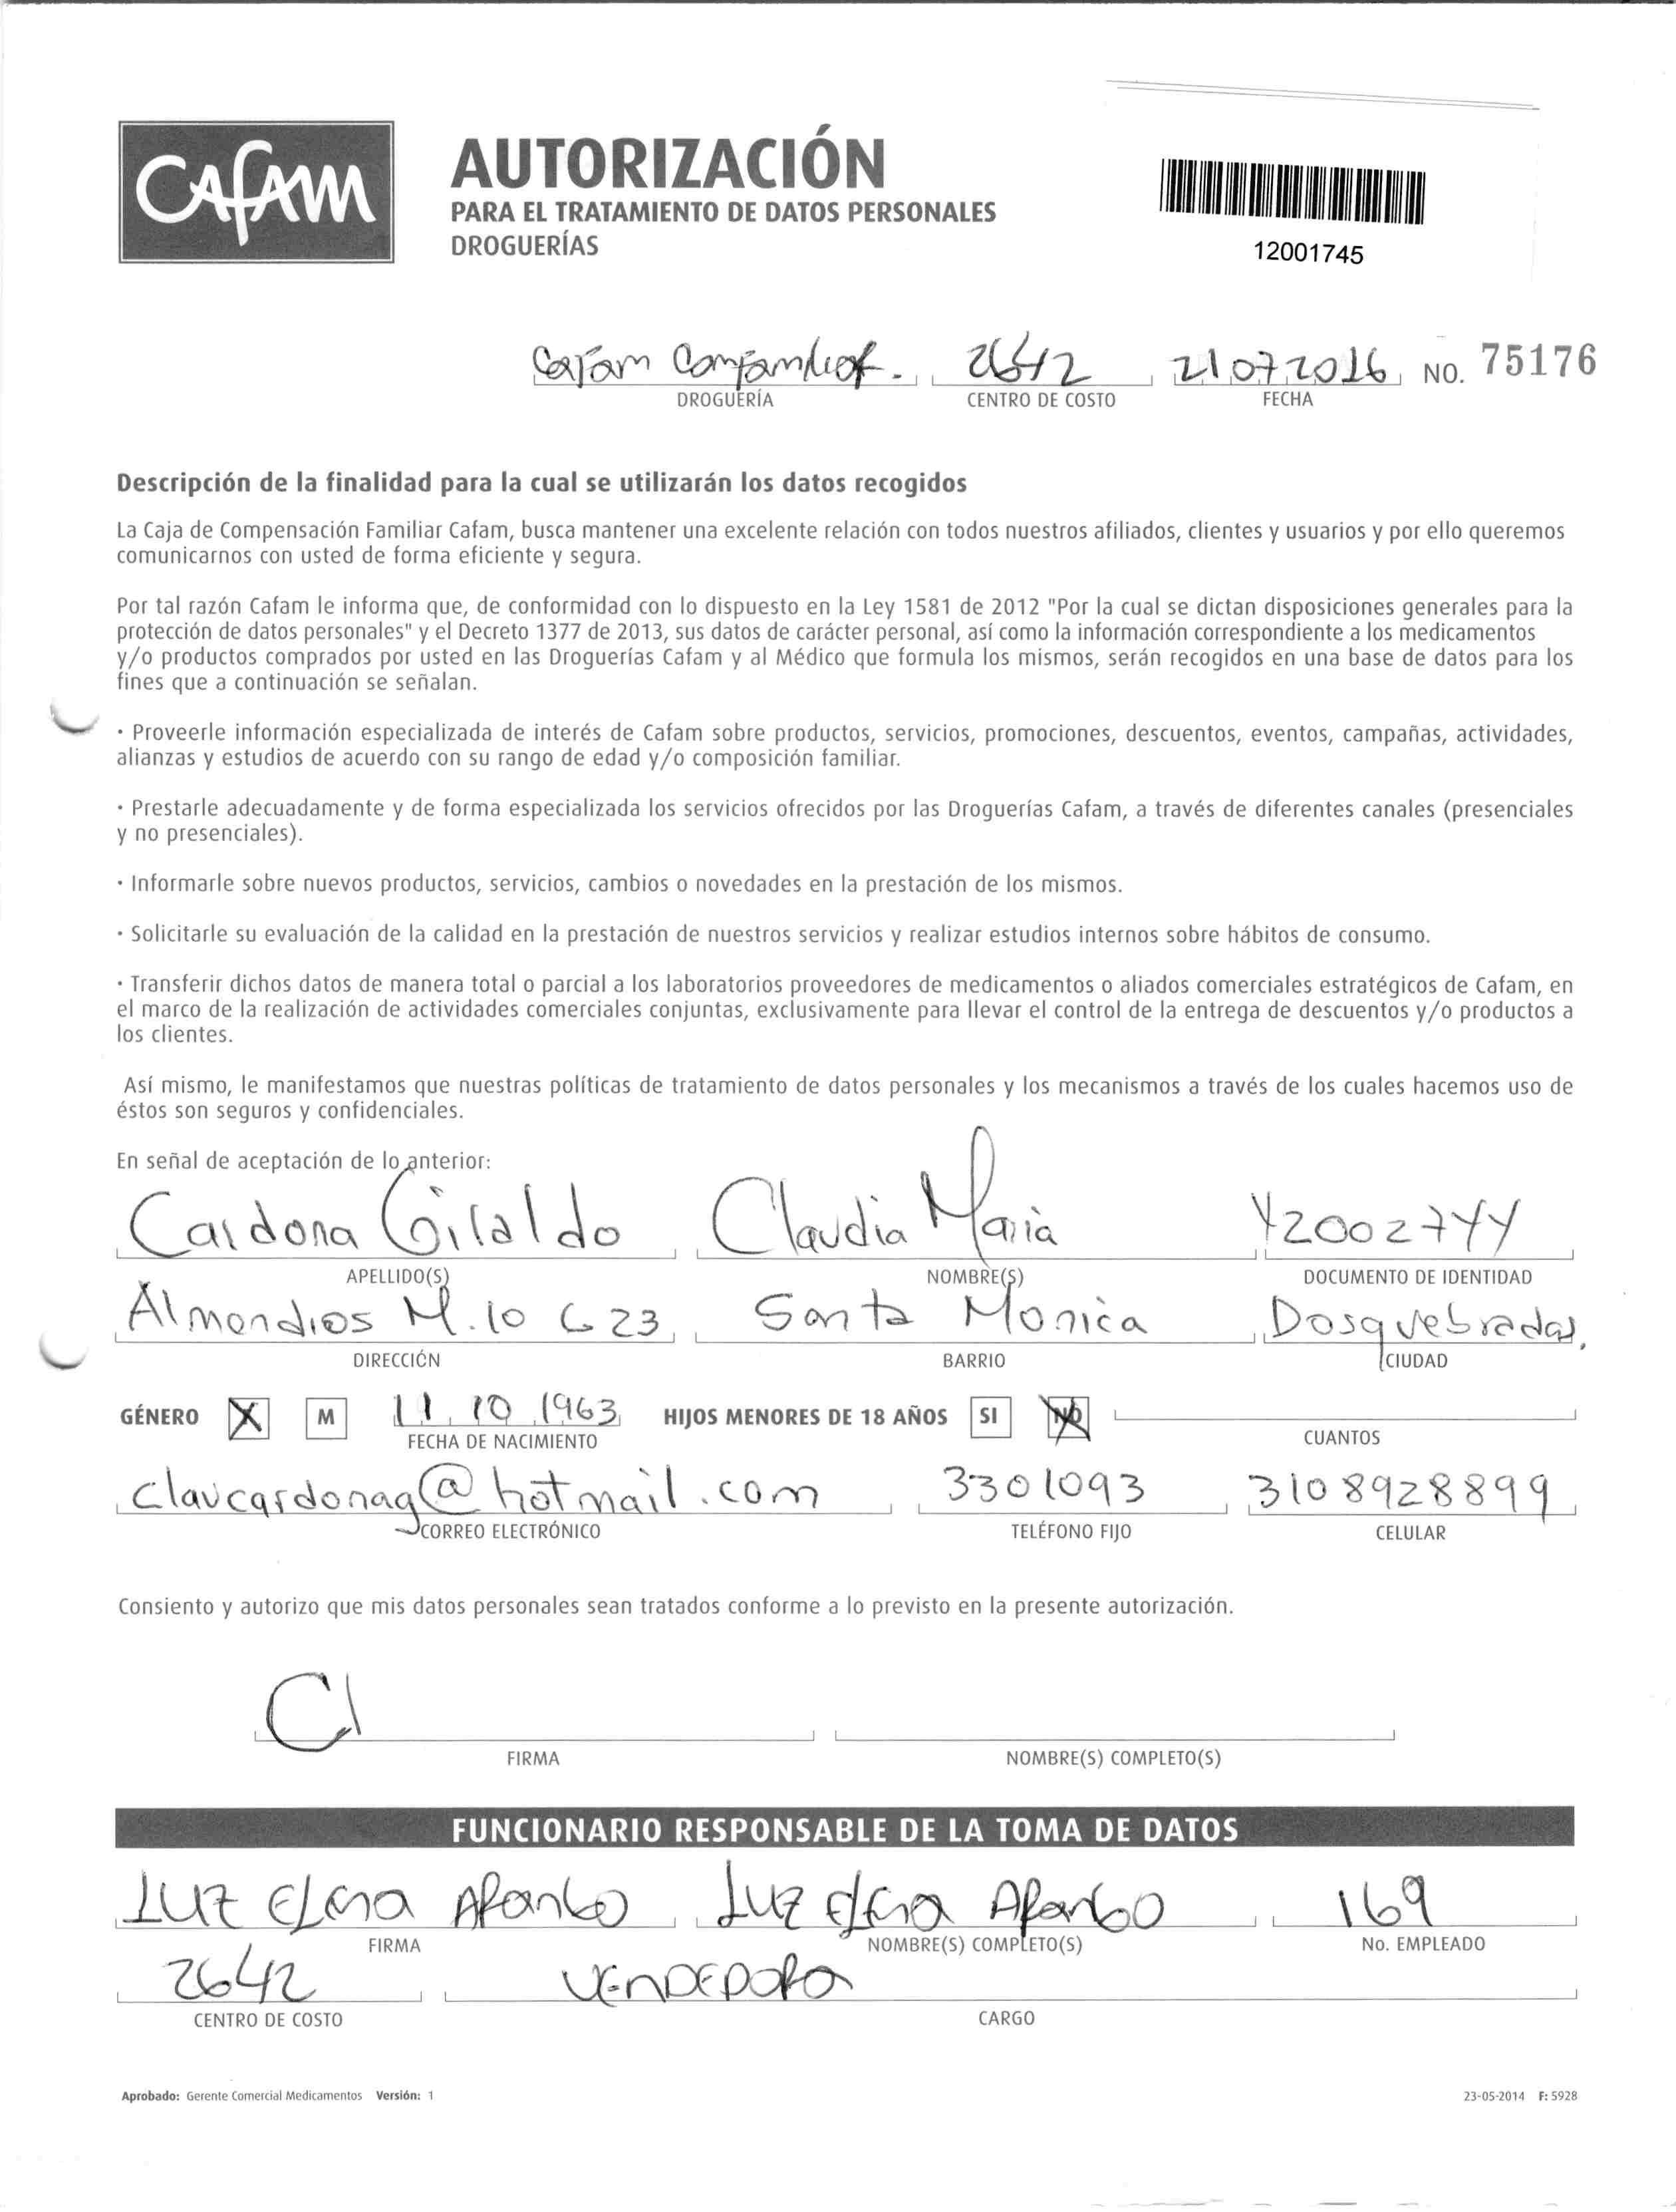 CAFAM
AUTORIZACIÓN
PARA EL TRATAMIENTO DE DATOS PERSONALES
DROGUERÍAS
12001745
Cafam 2642 21 07 2016 NO. 75176
DROGUERÍA CENTRO DE COSTO FECHA
Descripción de la finalidad para la cual se utilizarán los datos recogidos
La Caja de Compensación Familiar Cafam, busca mantener una excelente relación con todos nuestros afiliados, clientes y usuarios y por ello queremos
comunicarnos con usted de forma eficiente y segura.
Por tal razón Cafam le informa que, de conformidad con lo dispuesto en la Ley 1581 de 2012 "Por la cual se dictan disposiciones generales para la
protección de datos personales" y el Decreto 1377 de 2013, sus datos de carácter personal, así como la información correspondiente a los medicamentos
y/o productos comprados por usted en las Droguerías Cafam y al Médico que formula los mismos, serán recogidos en una base de datos para los
fines que a continuación se señalan.
· Proveerle información especializada de interés de Cafam sobre productos, servicios, promociones, descuentos, eventos, campañas, actividades,
alianzas y estudios de acuerdo con su rango de edad y/o composición familiar.
· Prestarle adecuadamente y de forma especializada los servicios ofrecidos por las Droguerías Cafam, a través de diferentes canales (presenciales
y no presenciales).
· Informarle sobre nuevos productos, servicios, cambios o novedades en la prestación de los mismos.
· Solicitarle su evaluación de la calidad en la prestación de nuestros servicios y realizar estudios internos sobre hábitos de consumo.
· Transferir dichos datos de manera total o parcial a los laboratorios proveedores de medicamentos o aliados comerciales estratégicos de Cafam, en
el marco de la realización de actividades comerciales conjuntas, exclusivamente para llevar el control de la entrega de descuentos y/o productos a
los clientes.
Así mismo, le manifestamos que nuestras políticas de tratamiento de datos personales y los mecanismos a través de los cuales hacemos uso de
éstos son seguros y confidenciales.
En señal de aceptación de lo anterior:
Cardona Giraldo Claudia Maria 42002744
APELLIDO(S) NOMBRE(S) DOCUMENTO DE IDENTIDAD
Almendros M.10 C 23 Santa Monica Dosquebradas,
DIRECCIÓN BARRIO CIUDAD
GÉNERO X M 11 10 1963 HIJOS MENORES DE 18 AÑOS SI NO
FECHA DE NACIMIENTO CUANTOS
claucardonag@hotmail.com 3301093 3108928899
CORREO ELECTRÓNICO TELÉFONO FIJO CELULAR
Consiento y autorizo que mis datos personales sean tratados conforme a lo previsto en la presente autorización.
Cl
FIRMA NOMBRE(S) COMPLETO(S)
FUNCIONARIO RESPONSABLE DE LA TOMA DE DATOS
Luz Elena Luz Elena 169
FIRMA NOMBRE(S) COMPLETO(S) No. EMPLEADO
2642 VENDEDORA
CENTRO DE COSTO CARGO
Aprobado: Gerente Comercial Medicamentos Versión: 1 23-05-2014 F: 5928